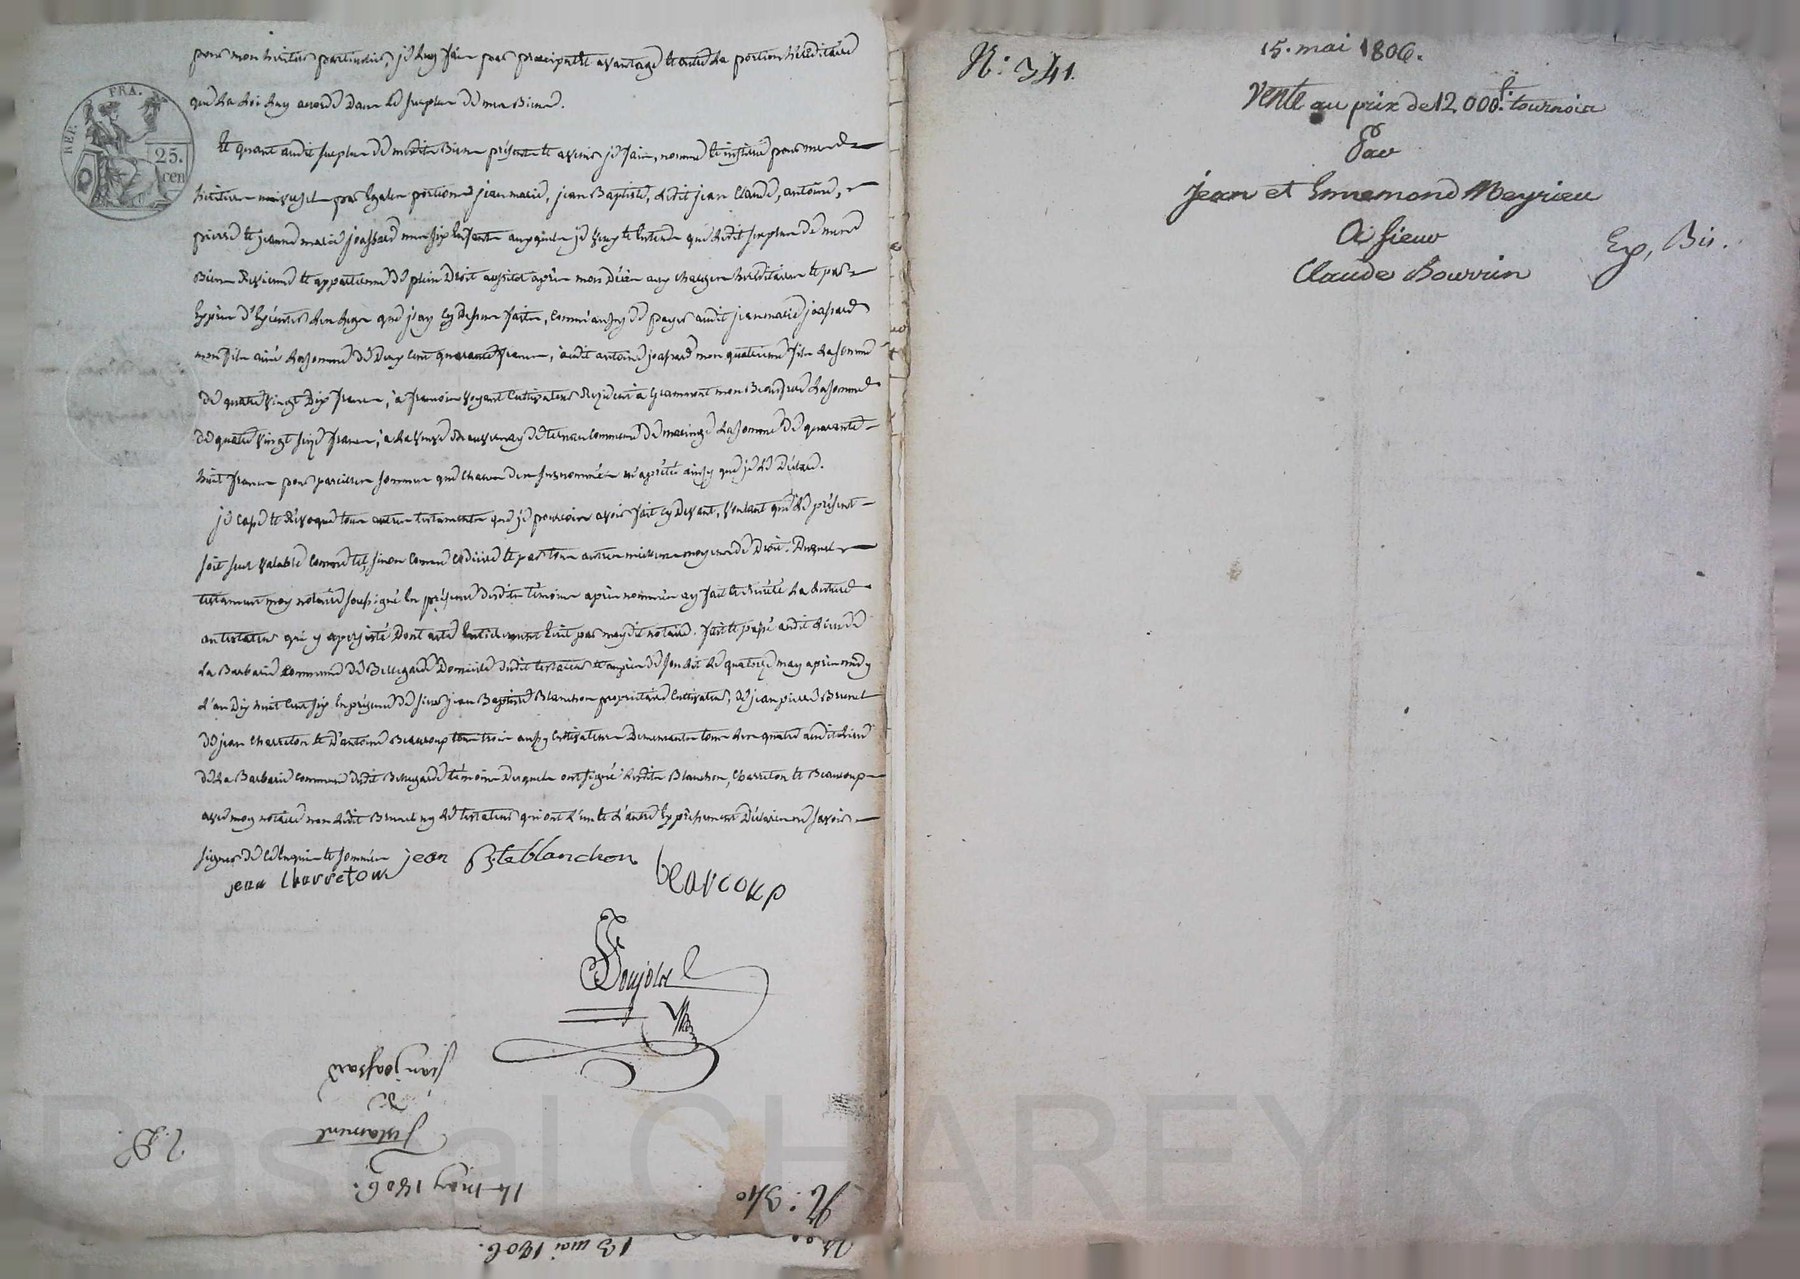 pour mon héritier particulier, je luy fais par préciput et avantage de toute la portion héréditaire
que la loi luy accorde dans le surplus de mes Biens.
Et quant audit surplus de mesdits Biens présents et avenir je fais, nomme et institue pour mes
héritiers universels par Egales portions jean marie, jean Baptiste, ledit jean Claude, antoine,
pierre et jeanne marie joassard mes six Enfants auxquels je veux et Entends que ledit surplus de mes
Biens Revienne et appartienne de plein Droit aussitot après mon Décès aux charges héréditaires et par
Exprès d'Exécuter les legs que j'ay cy Dessus faits, comme aussy de payer audit jean marie joassard
mon fils ainé la somme de Deux cent quarante francs, à audit antoine joassard mon quatrieme fils la somme
de quatre vingt Dix francs, à françois voyant Cultivateur Résident à Grammont mon Beaufrere la somme
de quatre vingt seize francs, à la veuve commune de maringe la somme de quarante
huit francs pour pareilles sommes que chacun des susnommés m'a prêtée ainsy que je le Déclare.
je casse et Révoque tous autres testaments que je pourrois avoir fait cy Devant, voulant que le présent
soit seul valable comme tel, sinon comme codicile et par tous autres meilleurs moyens de Droit. Duquel
testament moy notaire soussigné En présence desdits témoins après nommés ay fait et Réitéré la lecture
au testateur qui y a persisté Dont acte Entièrement Ecrit par moydit notaire. fait et passé audit lieu de
la Barbarie commune de Bellegarde Domicile dudit testateur et auprès de son lit le quatorze may après midy
l'an Dix huit cent six En présence de sieur jean Baptiste Blanchon propriétaire Cultivateur, de jean pierre Brunel
de jean Charreton et d'antoine Beaucoup tous trois aussy Cultivateurs Demeurants tous les quatre audit lieu
de la Barbarie commune dudit Bellegarde témoins Desquels ont signé lesdits Blanchon, Charreton et Beaucoup
avec moy notaire non ledit Brunel ny le testateur qui ont l'un et l'autre Expréssement Déclaré ne savoir
signer de ce Enquis et sommés jean Bte blanchon
jean Charreton beaucoup
REP. FRA.
25.
cen
Jean joassard
de
Testament
14 may 1806.
N.° 340
13 mai 1806.
N.° 341.
15. mai 1806.
Vente au prix de 12,000.# tournois
Par
Jean et Ennemond Meyrieu
A Sieur
Claude Bourrin
Exp, Bis.
Pascal CHAREYRON